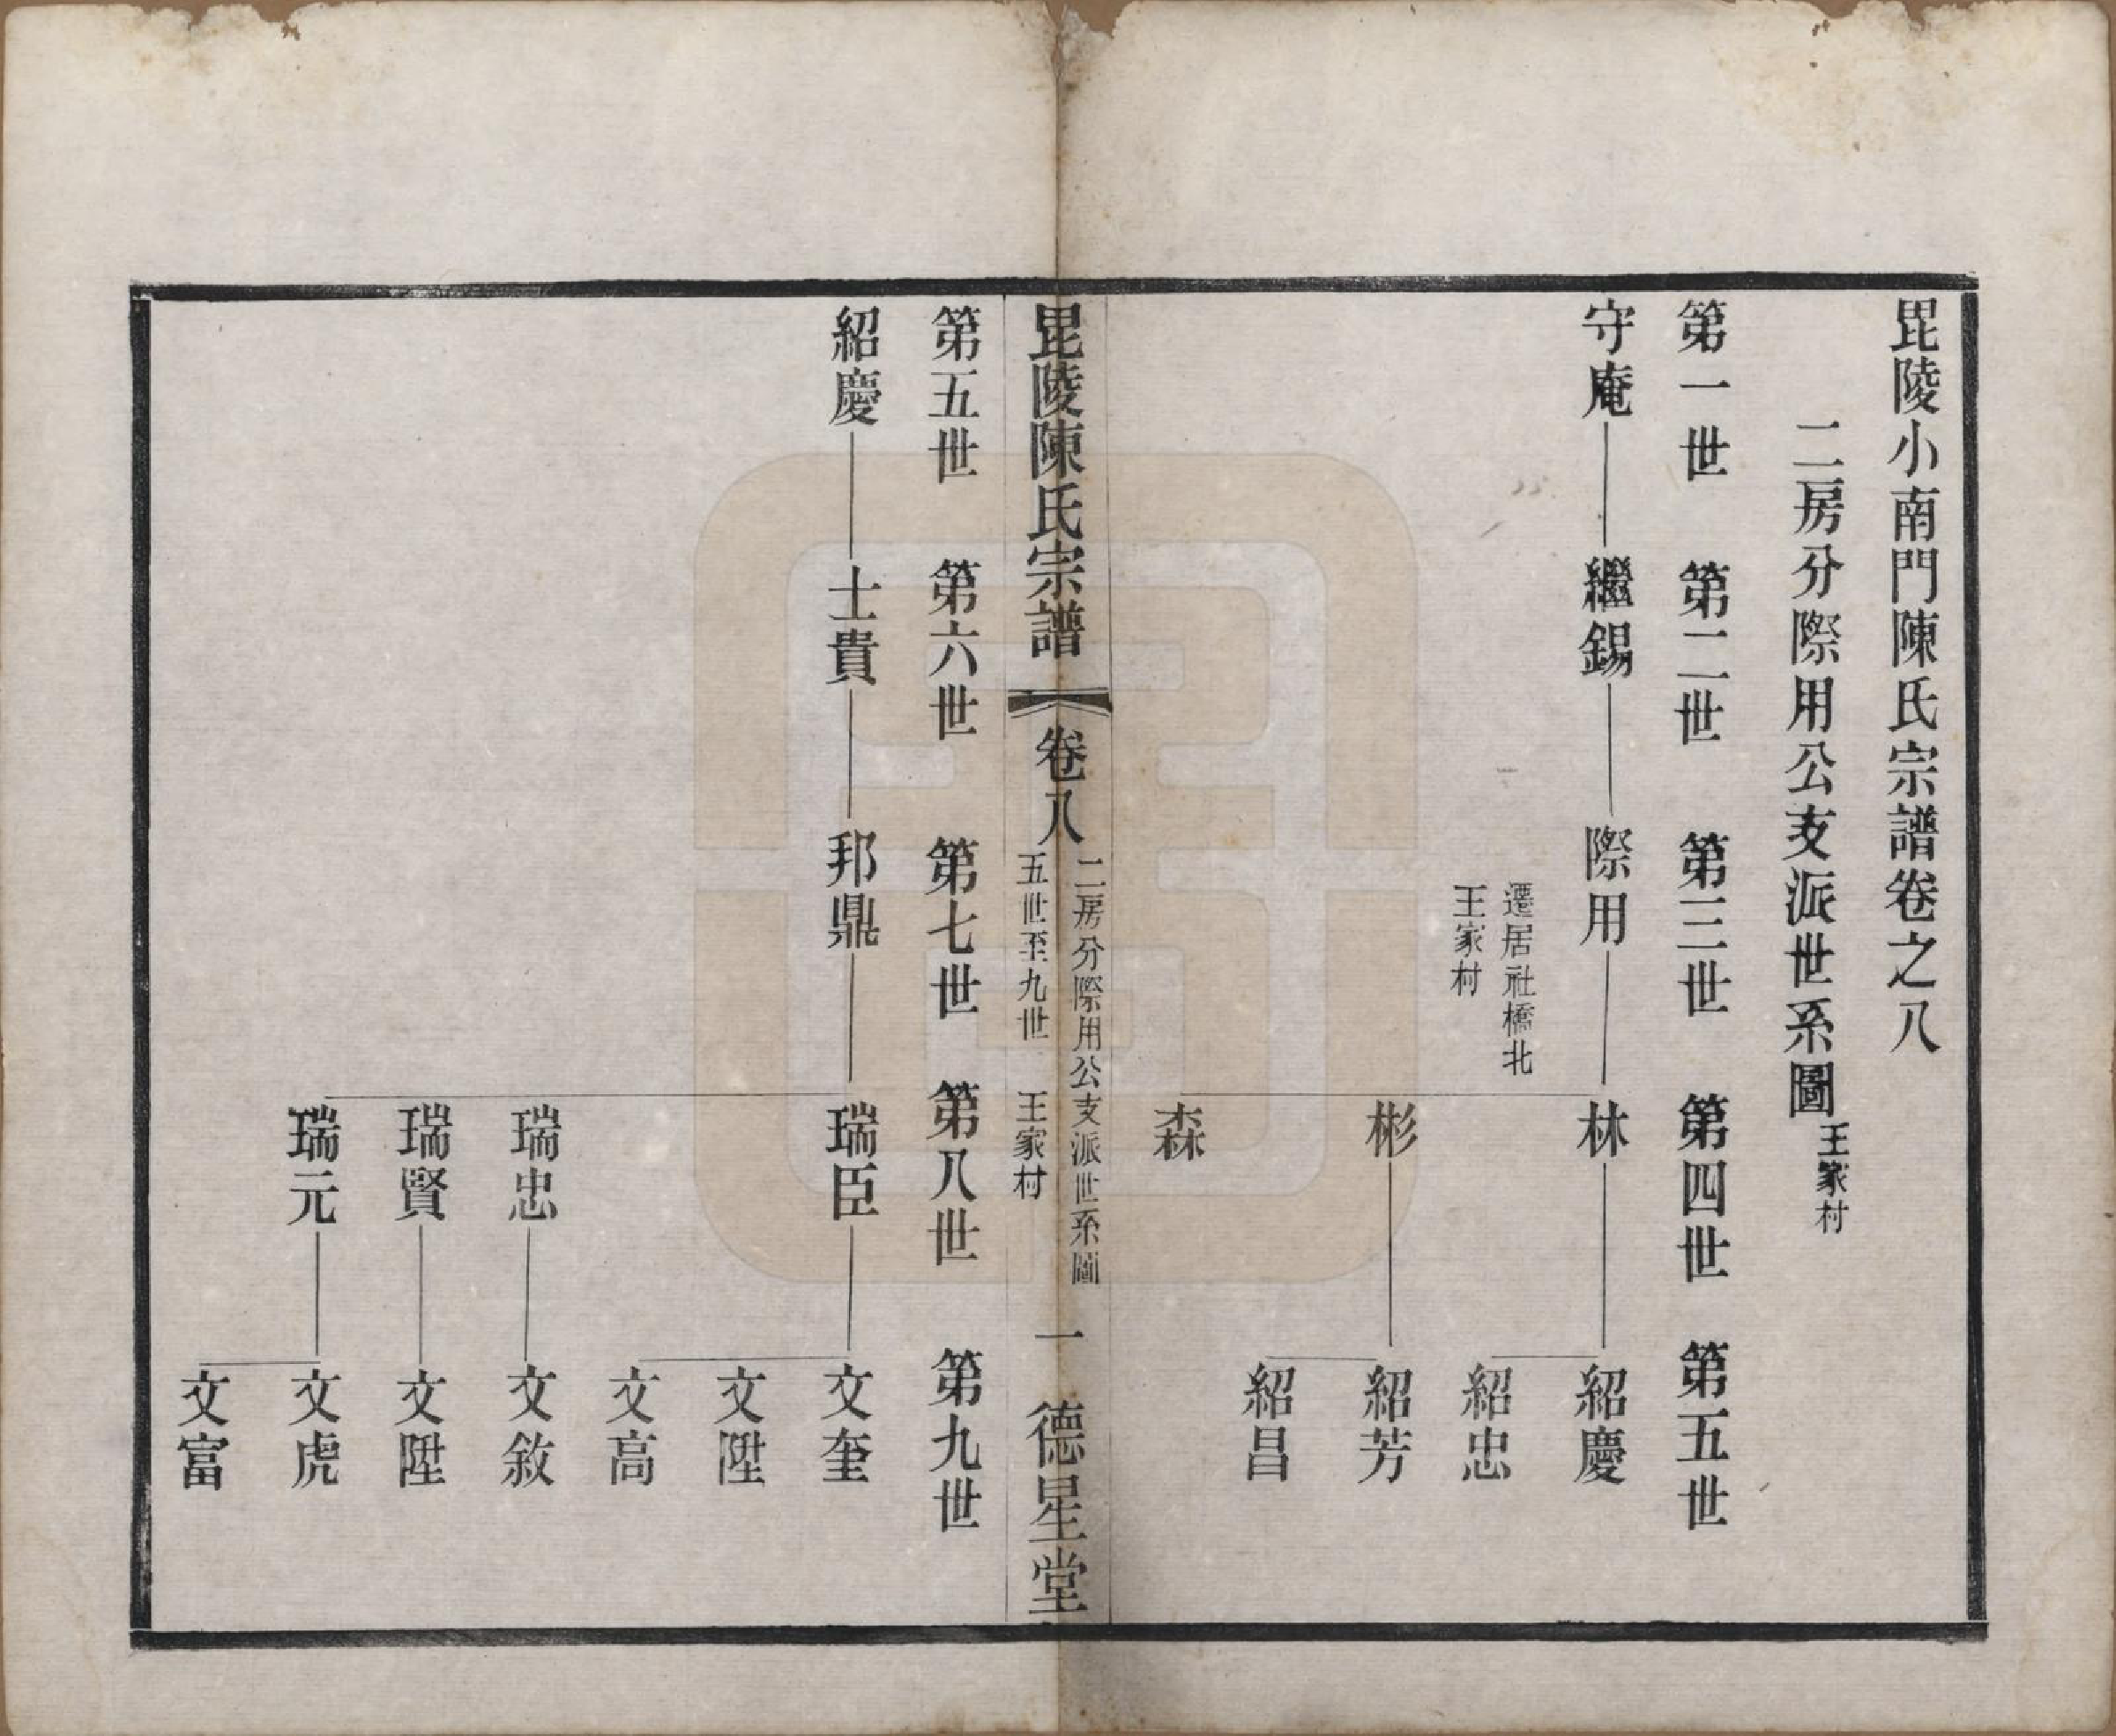 毘陵小南門陳氏宗譜卷之八
二房分際用公支派世系圖王家村
第一世　第二世　第三世　第四世　第五世
守庵　繼錫　際用　林　紹慶
遷居社橋北
王家村
紹忠
彬　紹芳
紹昌
森
毘陵陳氏宗譜　卷八　二房分際用公支派世系圖
五世至九世　王家村
一　德星堂
第五世　第六世　第七世　第八世　第九世
紹慶　士貴　邦鼎　瑞臣　文奎
文陞
文高
瑞忠　文敘
瑞賢　文陞
瑞元　文虎
文富